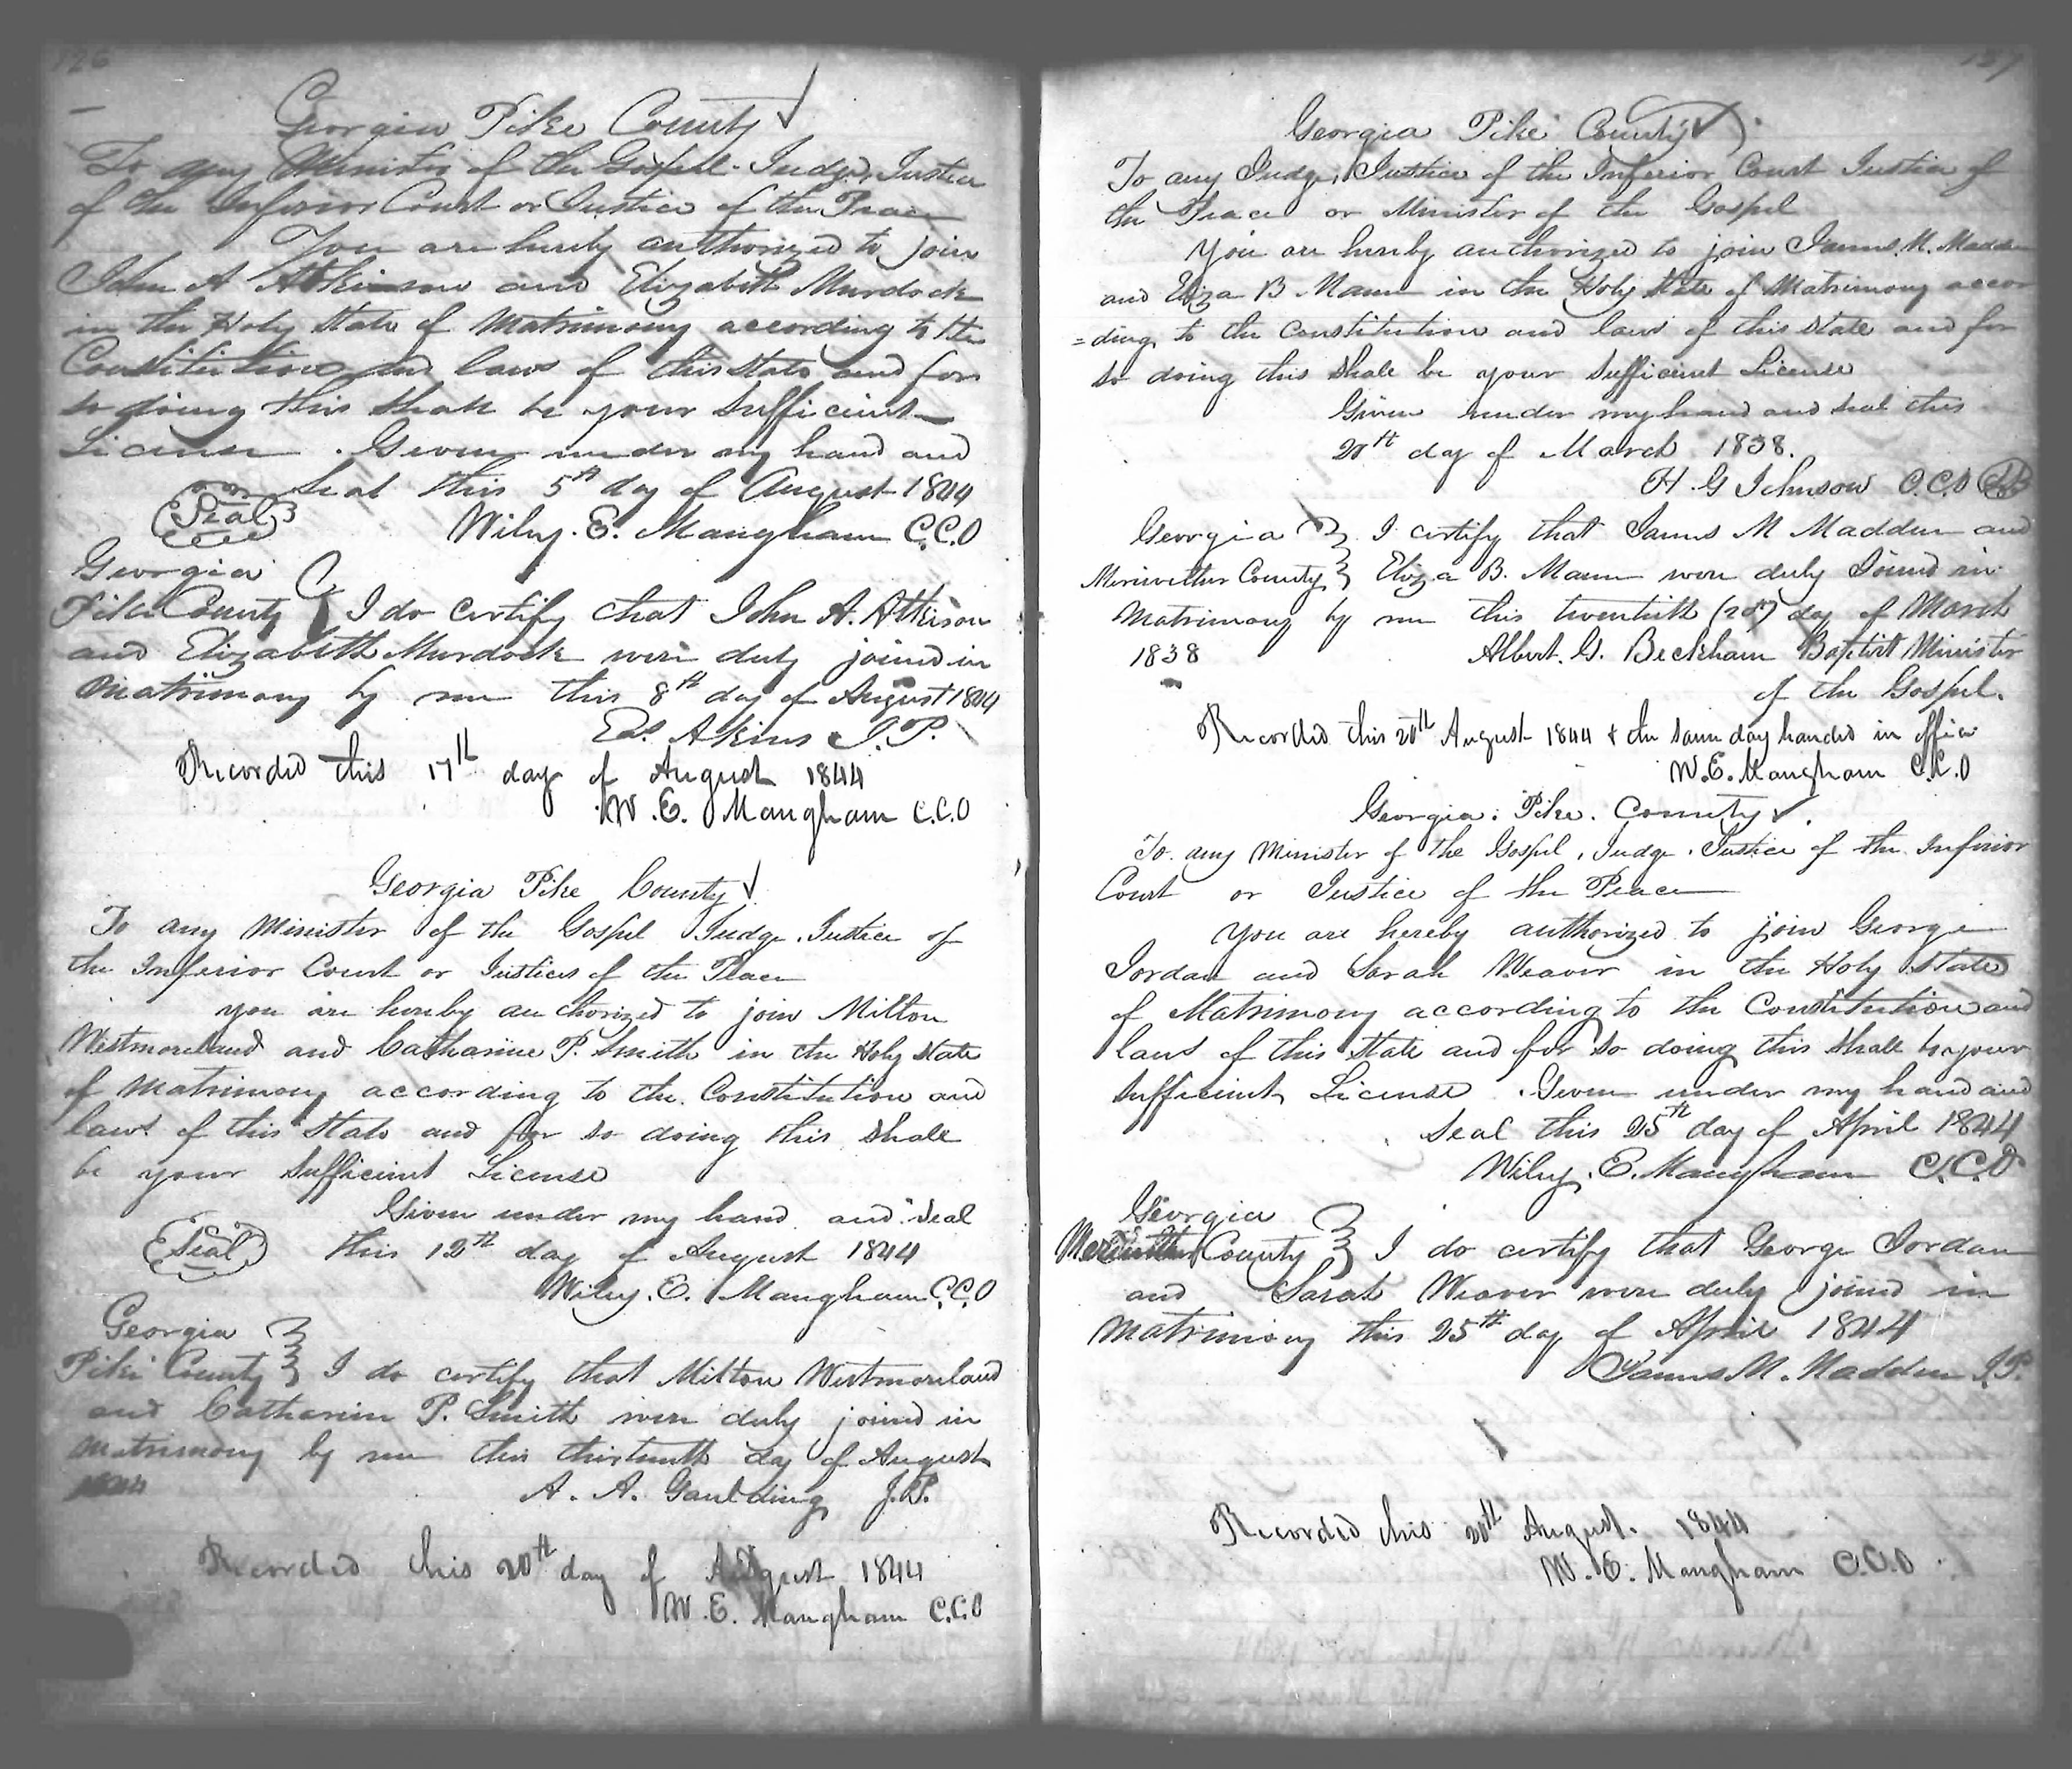 126
Georgia Pike County
To any Minister of the Gospel Judge, Justice
of the Inferior Court or Justice of the Peace
You are hereby authorized to join
John A Atkinson and Elizabeth Murdock
in the Holy State of Matrimony according to the
Constitution and laws of this State and for
so doing this shall be your sufficient
License . Given under my hand and
Seal this 5th day of August 1844
Seal
Wiley. E. Mangham C.C.O
Georgia
Pike County } I do certify that John A. Atkison
and Elizabeth Murdock were duly joined in
Matrimony by me this 8th day of August 1844
Akins J.P.
Recorded this 17th day of August 1844
W. E. Mangham C.C.O
Georgia Pike County
To any Minister of the Gospel Judge, Justice of
the Inferior Court or Justices of the Peace
you are hereby authorized to join Milton
Westmoreland and Catharine P. Smith in the Holy State
of Matrimony according to the Constitution and
laws of this State and for so doing this shall
be your sufficient License
Given under my hand and Seal
Seal this 12th day of August 1844
Wiley. E. Mangham C.C.O
Georgia
Pike County } I do certify that Milton Westmoreland
and Catharine P. Smith were duly joined in
Matrimony by me this thirteenth day of August
1844 A. A. Gaulding J.P.
Recorded this 20th day of August 1844
W. E. Mangham C.C.O
127
Georgia Pike County
To any Judge, Justice of the Inferior Court Justice of
the Peace or Minister of the Gospel
You are hereby authorized to join James. M. Madden
and Eliza B Mann in the Holy State of Matrimony accor
=ding to the Constitution and laws of this State and for
so doing this shall be your sufficient License
Given under my hand and seal this
20th day of March 1838.
H. G Johnson C.C.O
Georgia } I certify that James M Madden and
Meriwether County } Eliza B. Mann were duly Joined in
Matrimony by me this twentieth (20th) day of March
1838 Albert. G. Beckham Baptist Minister
of the Gospel.
Recorded this 20th August 1844 & the same day handed in office
W. E. Mangham C.C.O
Georgia. Pike. County
To any Minister of the Gospel, Judge, Justice of the Inferior
Court or Justice of the Peace
You are hereby authorized to join George
Jordan and Sarah Weaver in the Holy State
of Matrimony according to the Constitution and
laws of this State and for so doing this shall be your
sufficient License . Given under my hand and
Seal this 25th day of April 1844
Wiley. E. Mangham C.C.O
Georgia
Meriwether County } I do certify that George Jordan
and Sarah Weaver were duly joined in
Matrimony this 25th day of April 1844
James M. Madden J.P.
Recorded this 20th August. 1844
W. E. Mangham C.C.O